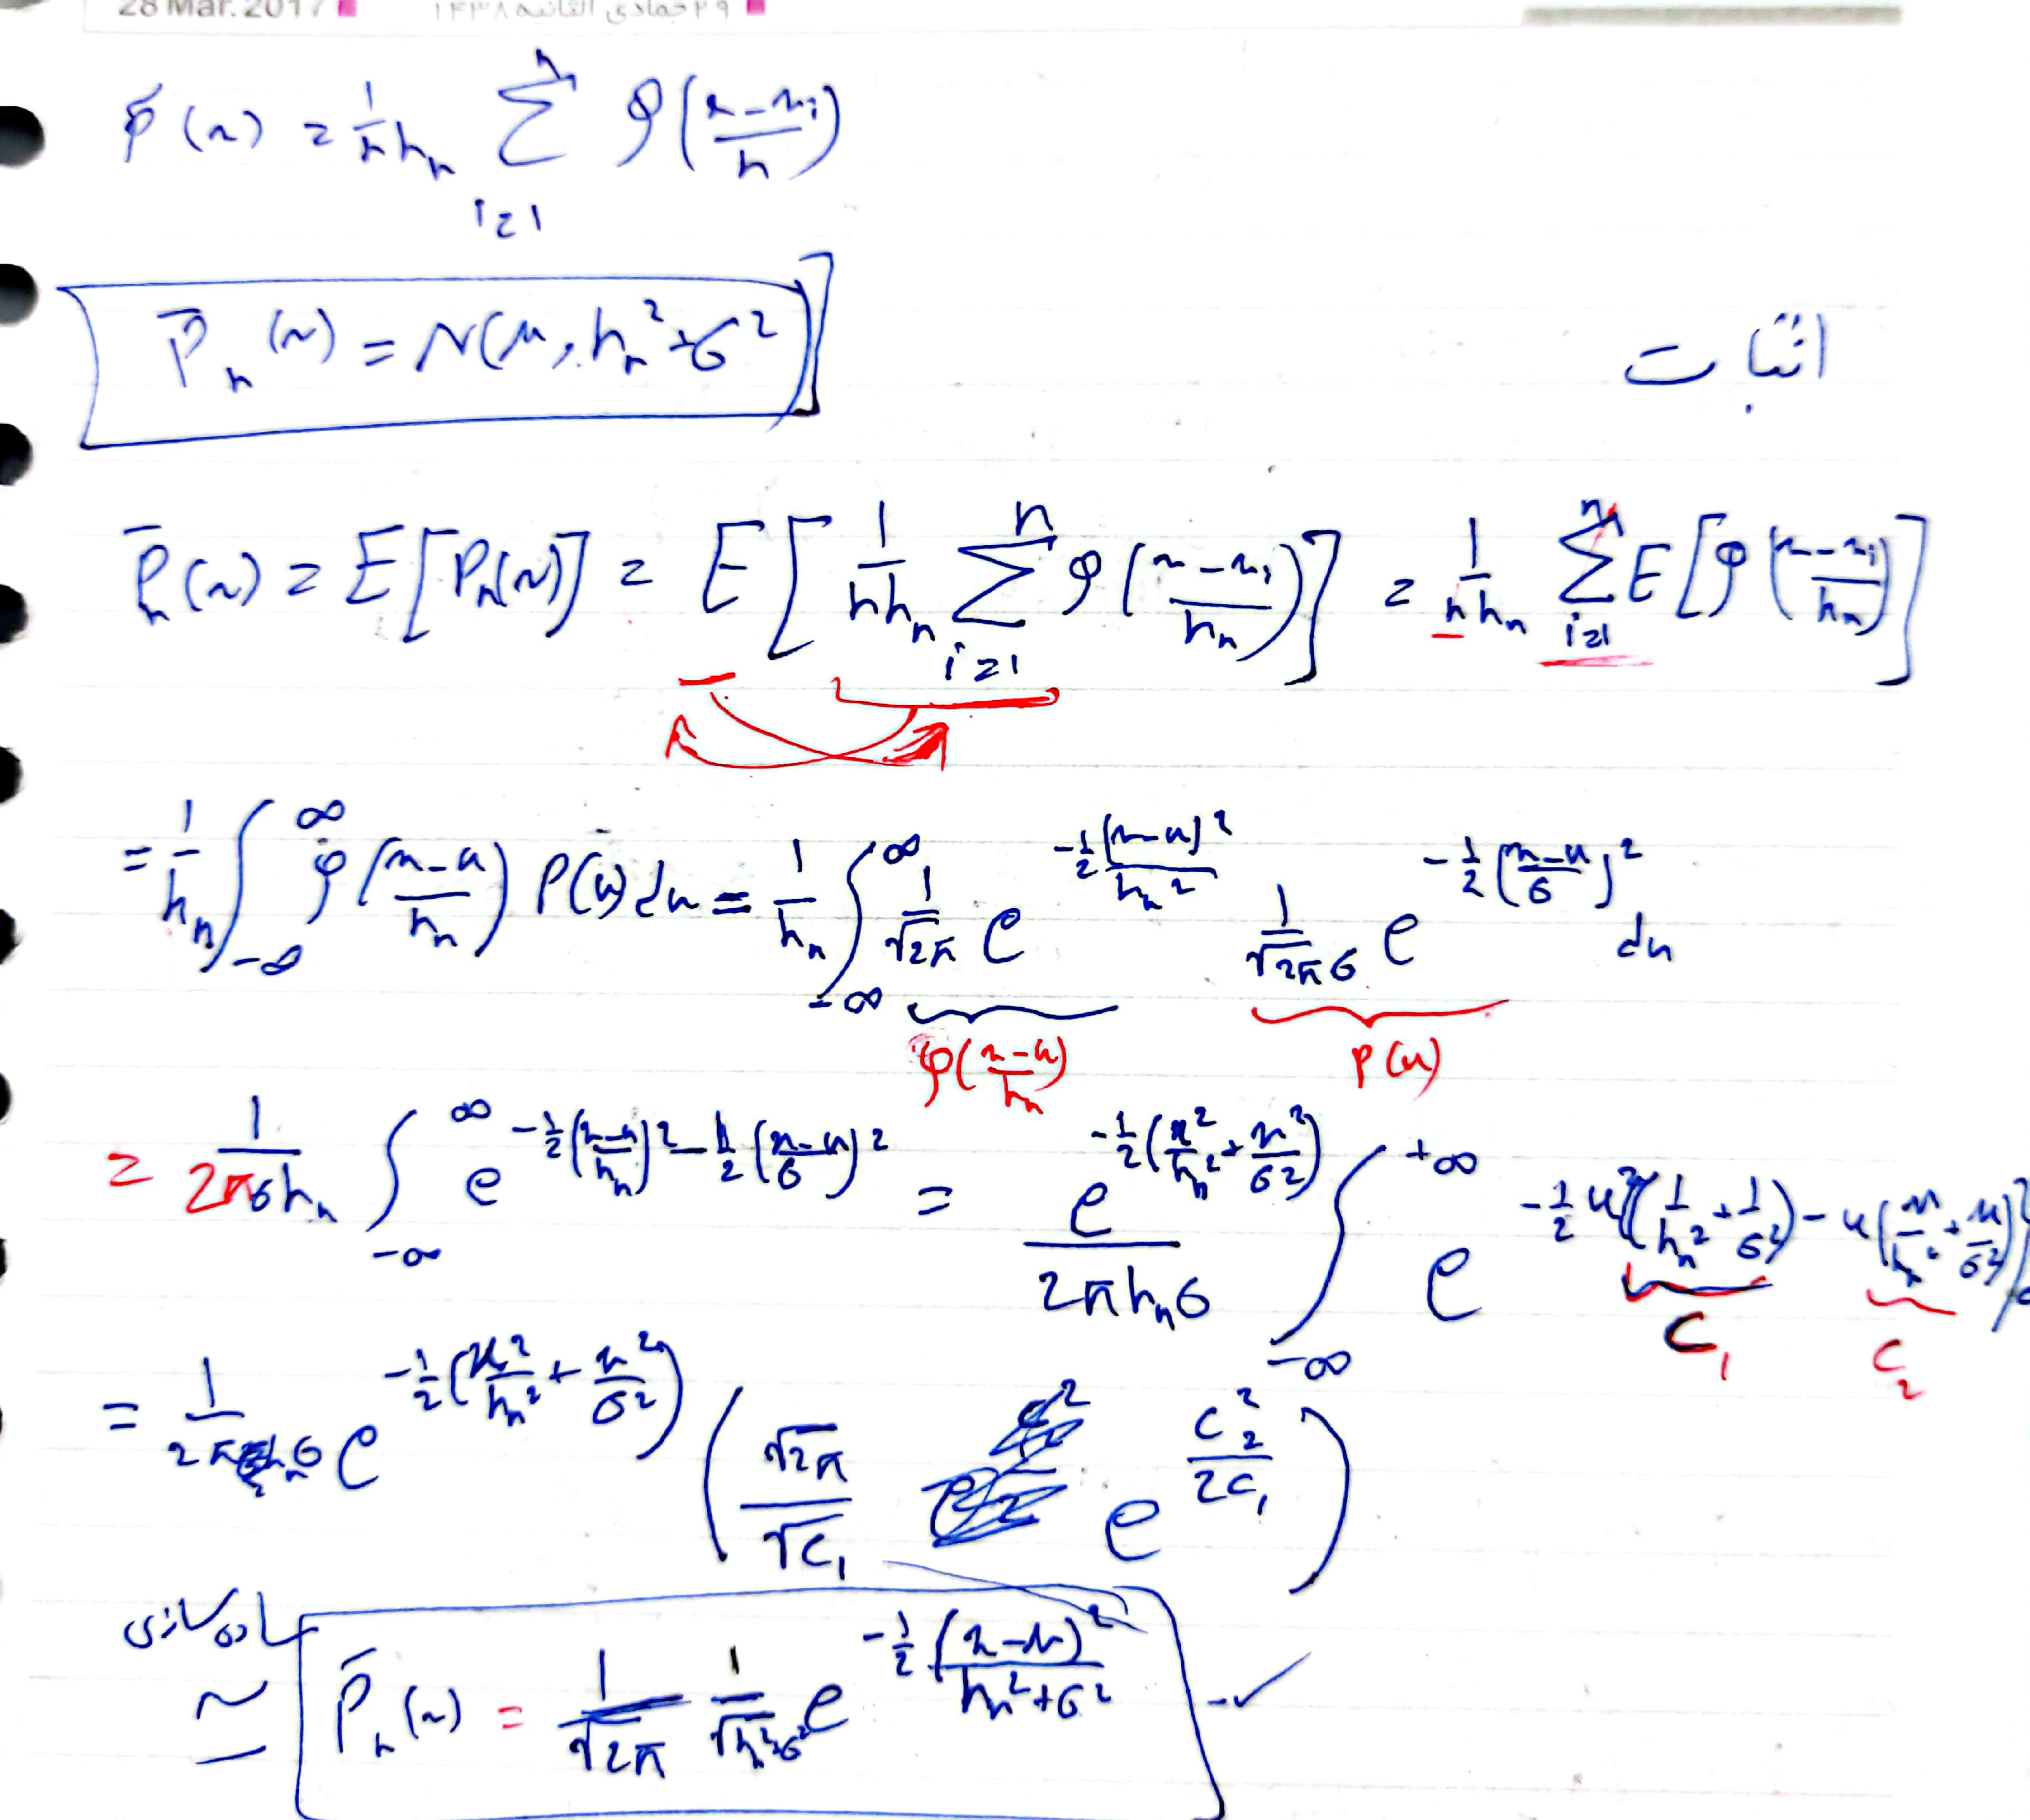 28 Mar. 2017 ۲۹ جمادی الثانیه ۱۴۳۸
p̄(x) = 1/(n hₙ) Σ_{i=1}^{n} φ((x-xᵢ)/h)
P̄ₙ(x) = N(μ, hₙ² + σ²)
اثبات
P̄ₙ(x) = E[Pₙ(x)] = E[1/(n hₙ) Σ_{i=1}^{n} φ((x-xᵢ)/hₙ)] = 1/(n hₙ) Σ_{i=1}^{n} E[φ((x-xᵢ)/hₙ)]
= 1/hₙ ∫_{-∞}^{∞} φ((x-u)/hₙ) P(u) du = 1/hₙ ∫_{-∞}^{∞} 1/√2π e^{-1/2 (x-u)²/hₙ²} 1/(√2π σ) e^{-1/2 ((u-μ)/σ)²} du
φ((x-u)/hₙ) P(u)
= 1/(2πσhₙ) ∫_{-∞}^{∞} e^{-1/2 ((x-u)/hₙ)² - 1/2 ((u-μ)/σ)²} = e^{-1/2 (x²/hₙ² + μ²/σ²)}/(2πhₙσ) ∫_{-∞}^{+∞} e^{-1/2 u²(1/hₙ² + 1/σ²) - u(x/hₙ² + μ/σ²)}
C₁ C₂
= 1/(2πhₙσ) e^{-1/2 (x²/hₙ² + μ²/σ²)} (√2π/√C₁ e^{C₂²/2C₁})
ساده سازی
≃ P̄ₙ(x) = 1/√2π 1/√(hₙ²+σ²) e^{-1/2 (x-μ)²/(hₙ²+σ²)} ✓